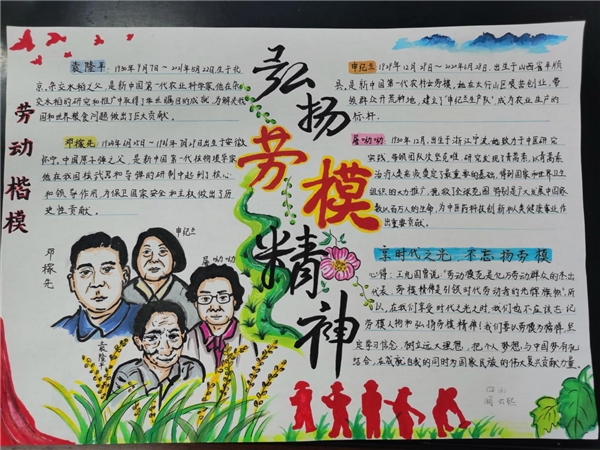 劳动楷模
弘扬
劳模
精神
袁隆平: 1930年9月7日~2021年5月22日生于北
京,杂交水稻之父,是新中国第一代农业科学家,他在杂
交水稻的研究和推广中取得了举世瞩目的成就,为解决我
国和世界粮食问题做出了巨大贡献。
邓稼先: 1924年6月25日~1986年7月29日出生于安徽
怀宁,中国原子弹之父,是新中国第一代核物理学家
他在我国核武器和导弹的研制中起到了核心
和领导作用,为保卫国家安全和主权做出了历
史性贡献。
申纪兰: 1929年12月29日~2020年6月28日,出生于山西省平顺
县,是新中国第一代农村女劳模,她在太行山区艰苦创业,带
领群众开荒种地,建立了"申纪兰生产队",成为农业生产的
标杆。
屠呦呦: 1930年12月,出生于浙江宁波,她致力于中医研究
实践,带领团队攻坚克难,研究发现了青蒿素,
享时代之光,不忘扬劳模
心得:
"劳动模范是亿万劳动群众的杰出
代表,劳模精神是引领时代劳动者的光辉旗帜"所
以,在我们享受时代之光之时,我们也不应该忘记
劳模人物和弘扬劳模精神!我们要以劳模为榜样,坚
定学习信念,树立远大理想,把个人梦想与中国梦紧密
结合,在成就自我的同时为国家民族的伟大复兴贡献力量。
邓稼先
申纪兰
屠呦呦
袁隆平